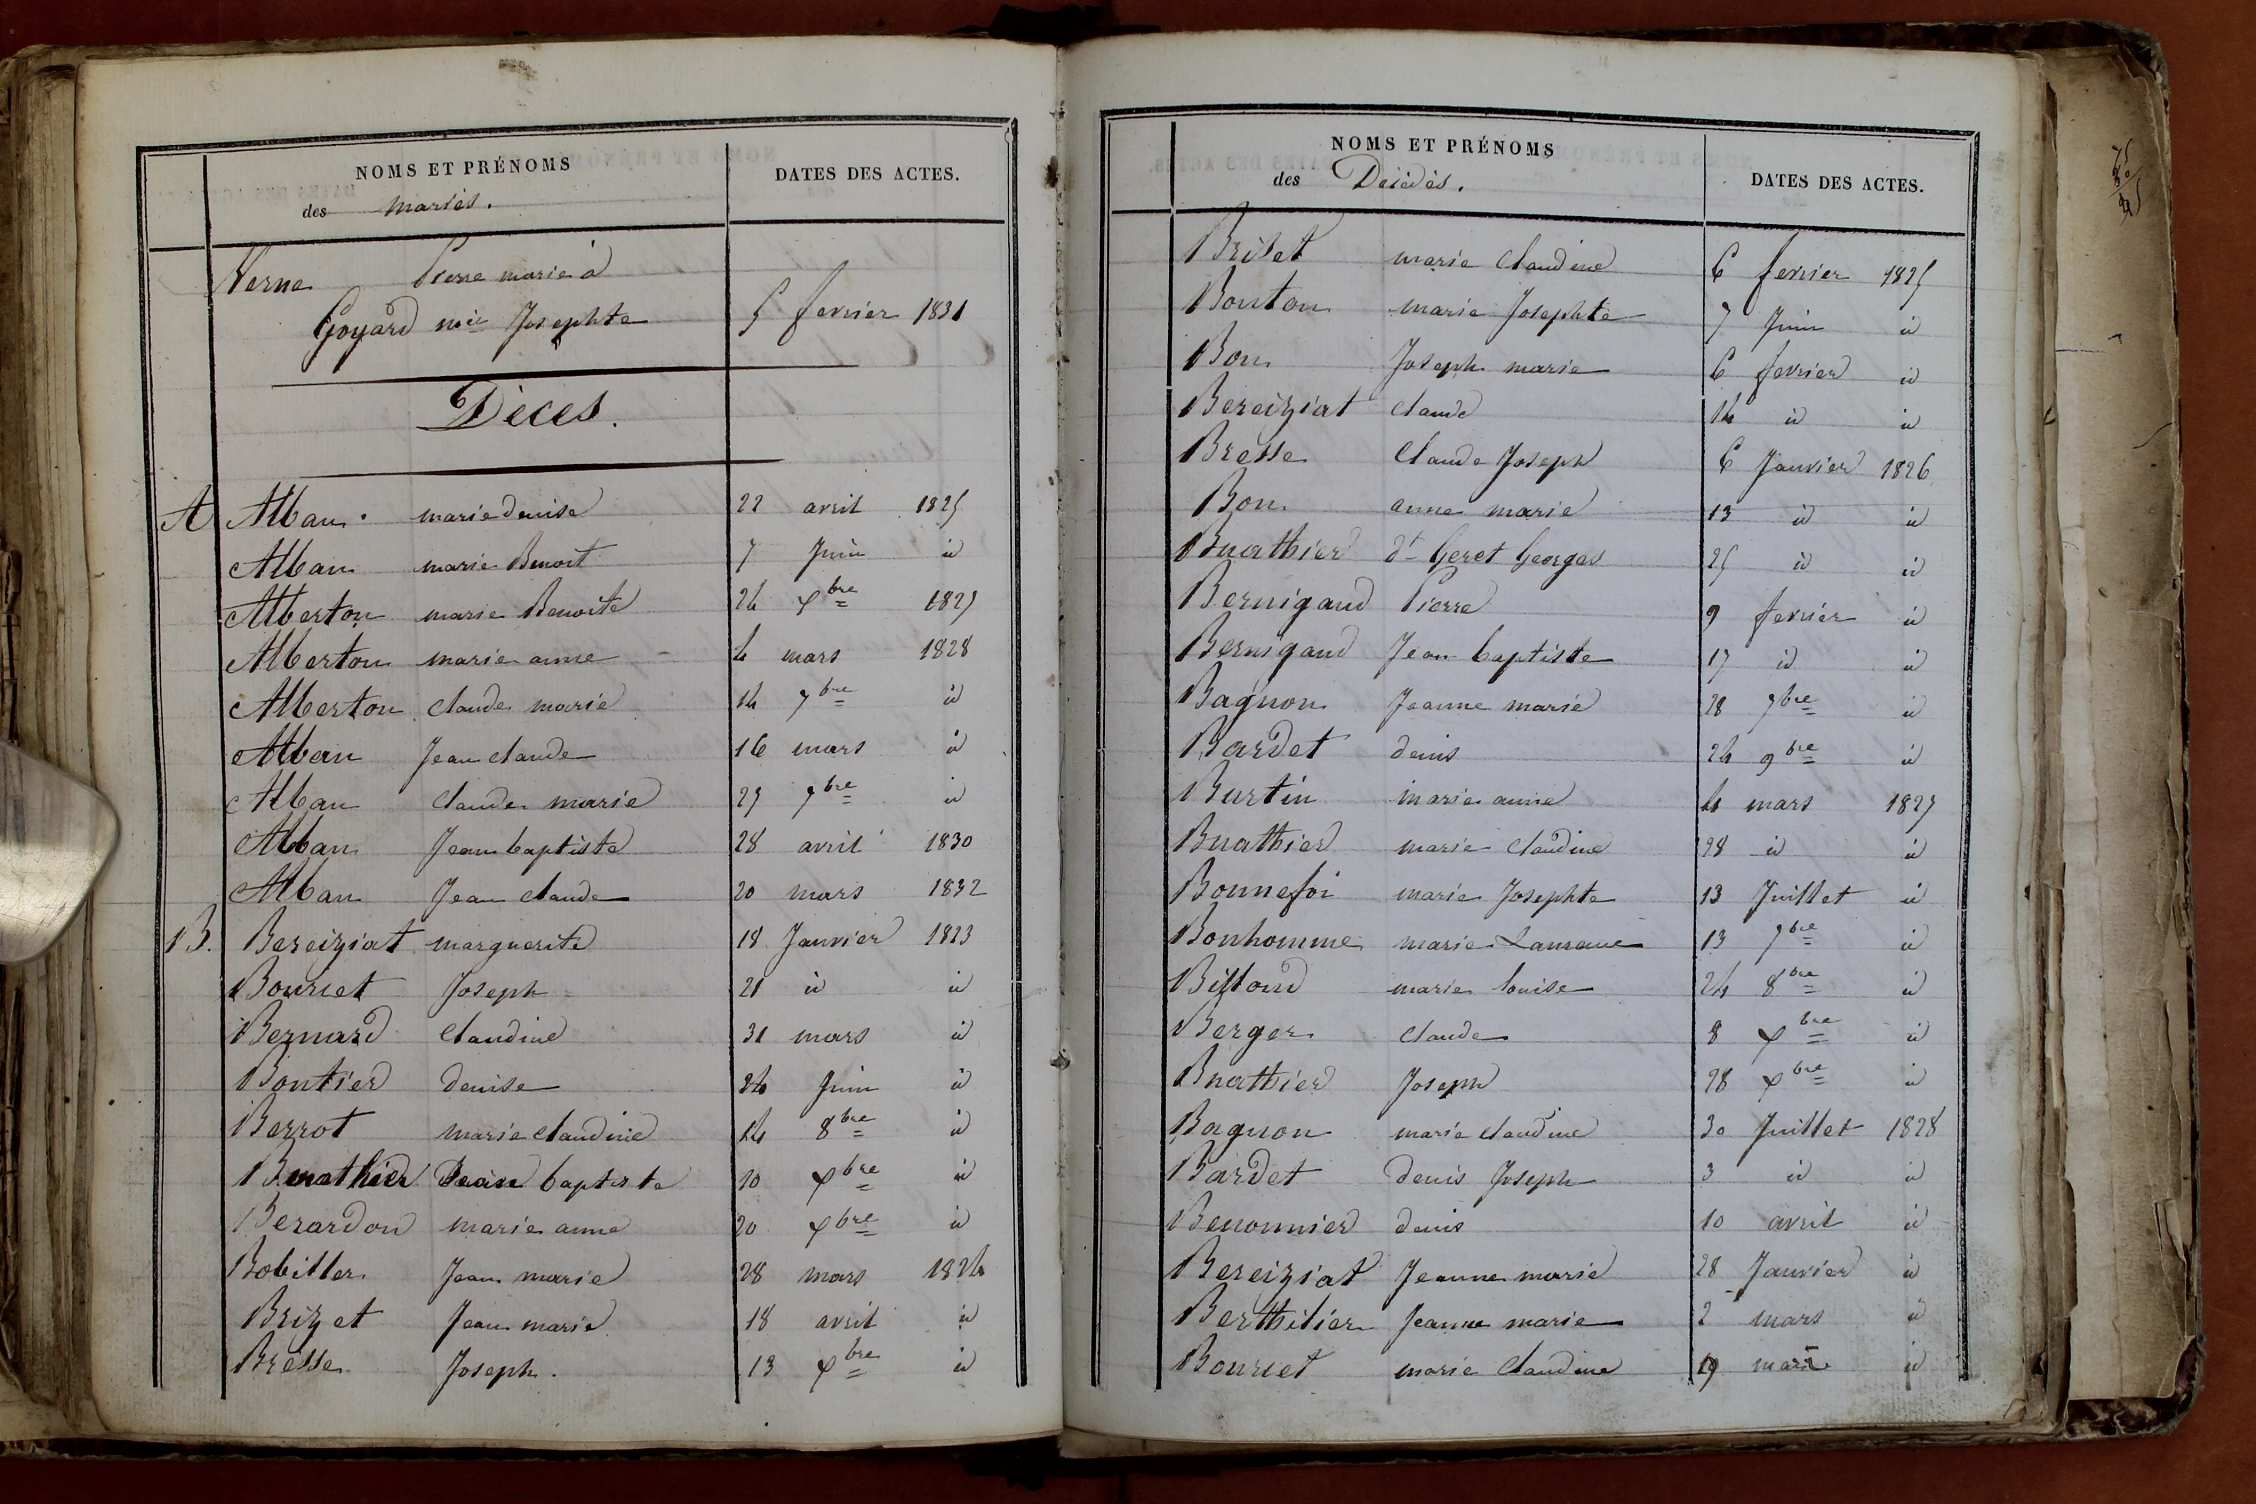 NOMS ET PRÉNOMS
des mariés.
DATES DES ACTES.
Verne Pierre marie à
Goyard mie Josephte 5 fevrier 1831
Décès.
A Alban marie denise 22 avril 1825
Alban marie Benoit 7 Juin id
Alberton marie Benoite 24 xbre 1827
Alberton marie anne 4 mars 1828
Alberton claude marie 14 7bre id
Alban Jean claude 16 mars id
Alban claude marie 27 7bre id
Alban Jean baptiste 28 avril 1830
Alban Jean claude 20 mars 1832
B. Bereiziat marguerite 18 Janvier 1823
Bourcet Joseph 21 id id
Bernard Claudine 31 mars id
Bontier denise 24 Juin id
Berrot marie claudine 14 8bre id
Buathier baptiste 10 xbre id
Berardon marie anne 20 xbre id
Bobiller Jean marie 28 mars 1824
Brizet Jean marie 18 avril id
Bresse Joseph. 13 xbre id
NOMS ET PRÉNOMS
des Décédés.
DATES DES ACTES.
Briset marie Claudine 6 fevrier 1825
Bouton marie Josephte 7 Juin id
Bon Joseph marie 6 fevrier id
Bereiziat claude 14 id id
Bresse Claude Joseph 6 Janvier 1826
Bon anne marie 13 id id
Buathier dt Geret Georges 25 id id
Bernigaud Pierre 9 fevrier id
Bernigaud Jean baptiste 17 id id
Bagnon Jeanne marie 28 7bre id
Bardet denis 24 9bre id
Burtin marie anne 4 mars 1827
Buathier marie Claudine 28 id id
Bonnefoi marie Josephte 13 Juillet id
Bonhomme marie 13 7bre id
Billoud marie louise 24 8bre id
Berger claude 8 xbre id
Buathier Joseph 28 xbre id
Bagnon marie claudine 30 Juillet 1828
Bardet denis Joseph 3 id id
Benonnier denis 10 avril id
Bereiziat Jeanne marie 28 Janvier id
Berthilier Jeanne marie 2 mars id
Bourcet marie Claudine 19 mars id